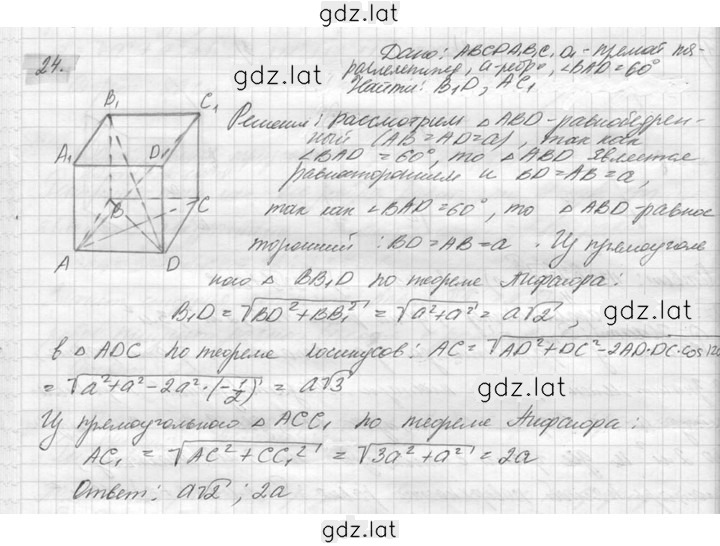 gdz.lat
24.
Дано: ABCDA₁B₁C₁D₁ - прямой па-
gdz.lat
раллелепипед, a-ребро, ∠BAD=60°
Найти: B₁D, AC₁
B₁ C₁
Решение: рассмотрим △ABD-равнобедрен-
ный (AB=AD=a), так как
A₁ D₁
∠BAD=60°, то △ABD является
равносторонним и BD=AB=a,
B C
так как ∠BAD=60°, то △ABD-равнос
торонний: BD=AB=a. Из прямоуголь
A D
ного △ BB₁D по теореме Пифагора:
B₁D=√BD²+BB₁²=√a²+a²=a√2,
gdz.lat
в △ADC по теореме косинусов: AC=√AD²+DC²-2AD·DC·cos120
=√a²+a²-2a²·(-1/2)=a√3
gdz.lat
Из прямоугольного △ACC₁ по теореме Пифагора:
AC₁=√AC²+CC₁²=√3a²+a²=2a
Ответ: a√2; 2a
gdz.lat